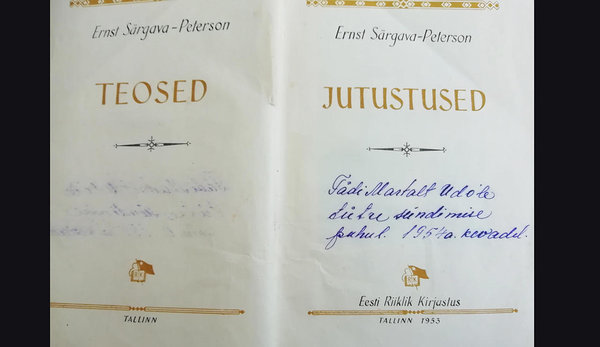 Ernst Särgava-Peterson
TEOSED
TALLINN
Ernst Särgava-Peterson
JUTUSTUSED
Tädi Martalt Udole
tütre sündimise
puhul. 1954 a. kevadel.
Eesti Riiklik Kirjastus
TALLINN 1953